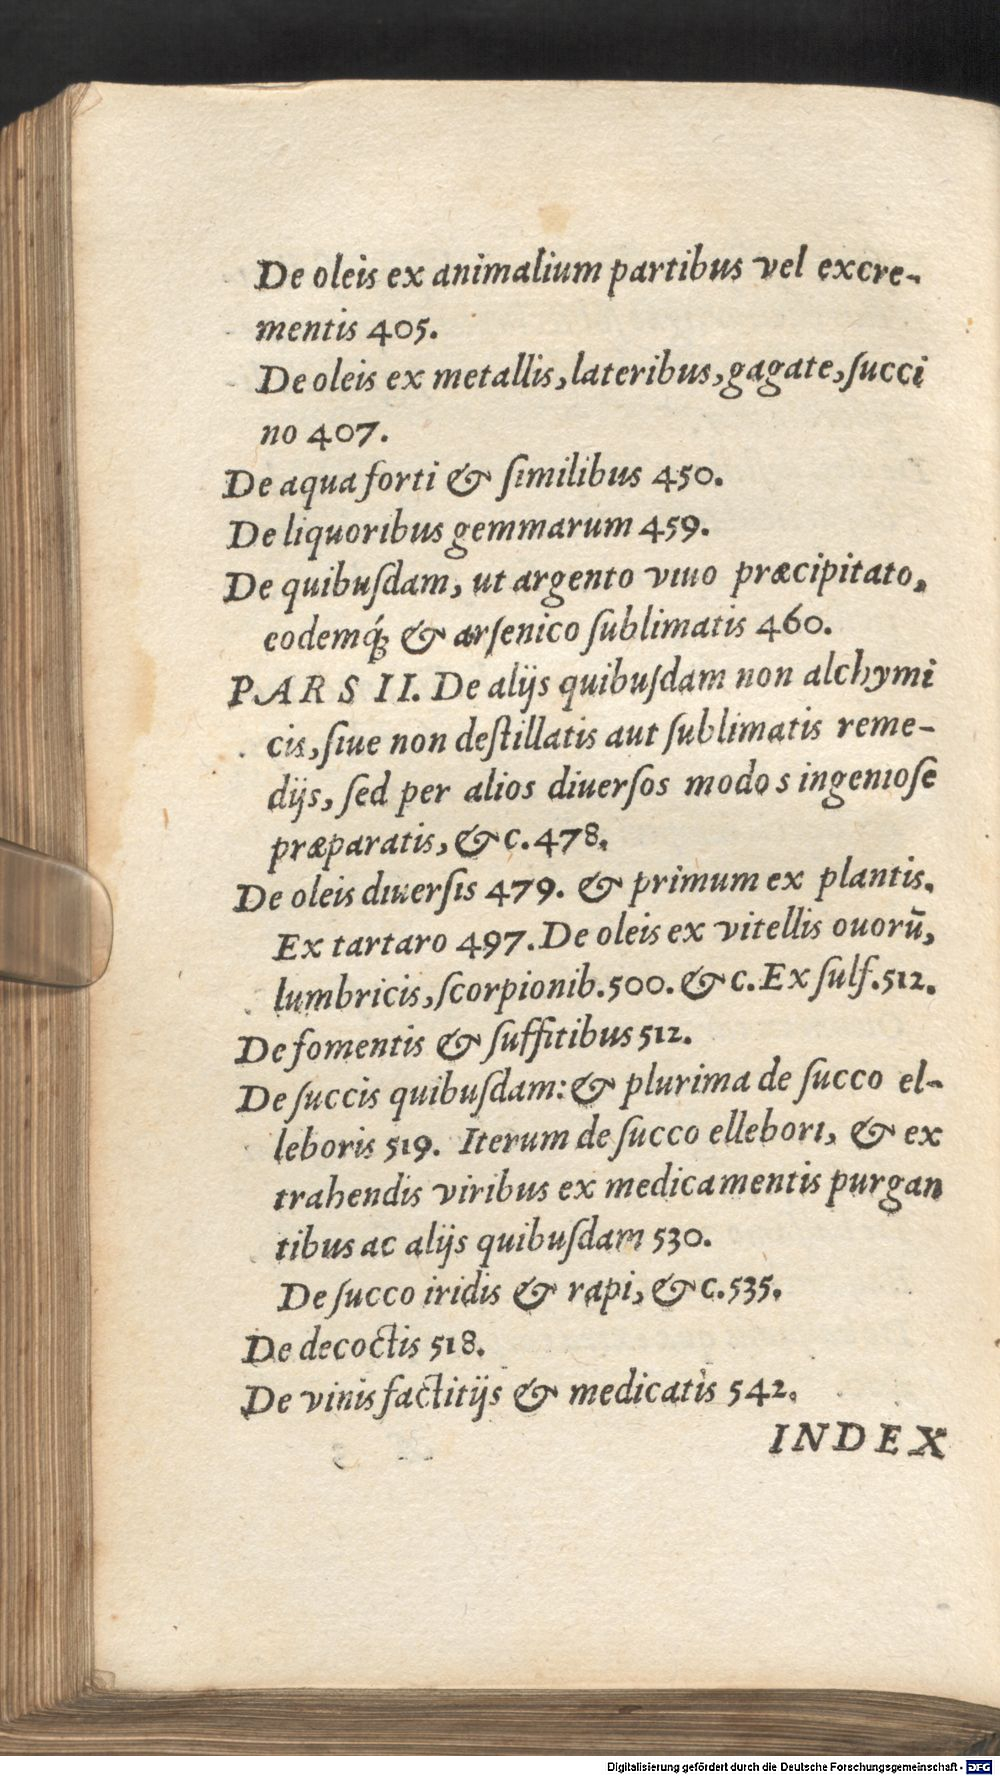 De oleis ex animalium partibus vel excre-
mentis 405.
De oleis ex metallis, lateribus, gagate, ſucci
no 407.
De aqua forti & ſimilibus 450.
De liquoribus gemmarum 459.
De quibuſdam, ut argento viuo præcipitato,
eodemq́; & arſenico ſublimatis 460.
PARS II. De alijs quibuſdam non alchymi
cis, ſiue non deſtillatis aut ſublimatis reme-
dijs, ſed per alios diuerſos modos ingenioſe
præparatis, &c. 478.
De oleis diuerſis 479. & primum ex plantis.
Ex tartaro 497. De oleis ex vitellis ouorū,
lumbricis, ſcorpionib. 500. &c. Ex ſulf. 512.
De fomentis & ſuffitibus 512.
De ſuccis quibuſdam: & plurima de ſucco el-
leboris 519. Iterum de ſucco ellebori, & ex
trahendis viribus ex medicamentis purgan
tibus ac alijs quibuſdam 530.
De ſucco iridis & rapi, &c. 535.
De decoctis 518.
De vinis factitijs & medicatis 542.
INDEX
Digitalisierung gefördert durch die Deutsche Forschungsgemeinschaft - DFG